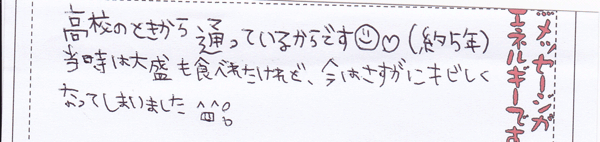 高校のときから通っているからです☺♡(約5年)
当時は大盛も食べれたけれど、今はさすがにキビしく
なってしまいました^^;
メッセージが
エネルギーです